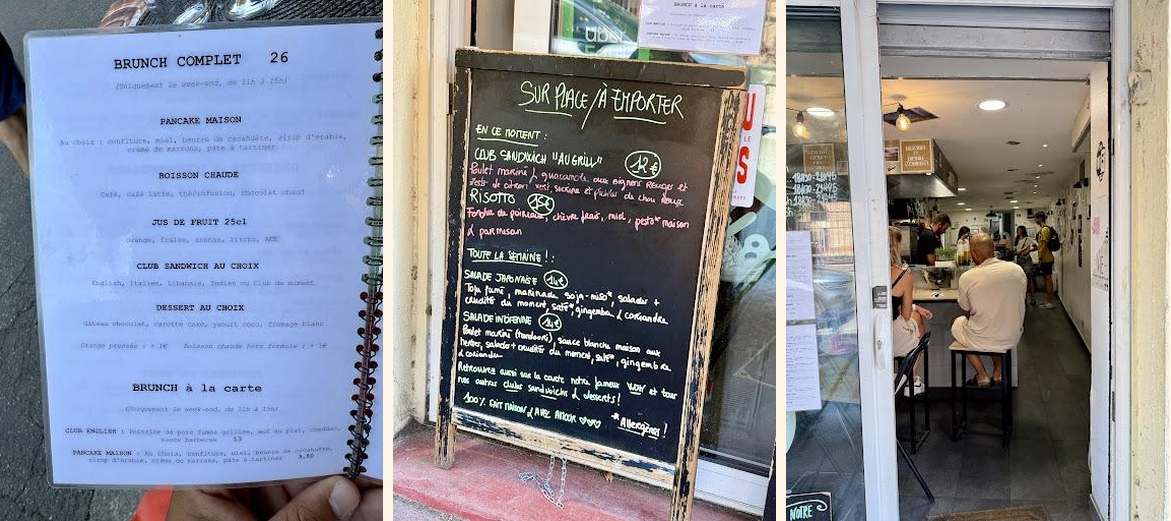 BRUNCH COMPLET 26
(Uniquement le week-end, de 11h à 15h)
PANCAKE MAISON
Au choix : confiture, miel, beurre de cacahuète, sirop d'érable,
crème de marrons, pâte à tartiner
BOISSON CHAUDE
Café, café latte, thé/infusion, chocolat chaud
JUS DE FRUIT 25cl
Orange, fraise, ananas, litchi, ACE
CLUB SANDWICH AU CHOIX
English, Italien, Libanais, Indien ou Club du moment
DESSERT AU CHOIX
Gâteau chocolat, carotte cake, yaourt coco, fromage blanc
Orange pressée : + 1€ Boisson chaude hors formule : + 1€
BRUNCH à la carte
(Uniquement le week-end, de 11h à 15h)
CLUB ENGLISH : Poitrine de porc fumée grillée, œuf au plat, cheddar,
sauce barbecue 13
PANCAKE MAISON : Au choix, confiture, miel, beurre de cacahuète,
sirop d'érable, crème de marrons, pâte à tartiner 3,50
BRUNCH à la carte
Uber
SUR PLACE/À EMPORTER
EN CE MOMENT :
CLUB SANDWICH "AU GRILL" 12€
Poulet mariné & guacamole aux oignons rouges et
zeste de citron vert, sucrine et pickles de chou rouge
RISOTTO 15€
Fondue de poireaux, chèvre frais, miel, pesto* maison
& parmesan
TOUTE LA SEMAINE ! :
SALADE JAPONAISE 14€
Tofu fumé, marinade soja-miso*, salade +
crudités du moment, saté*, gingembre & coriandre
SALADE INDIENNE 14€
Poulet mariné (tandoori), sauce blanche maison aux
herbes, salade + crudités du moment, saté*, gingembre
& coriandre
Retrouvez aussi sur la carte notre fameux et tous
nos autres clubs sandwichs & desserts !
100% FAIT MAISON & AVEC AMOUR ♡♡♡
*Allergènes !
U
S
18h30-21h45
18h30-21h45
NOTRE